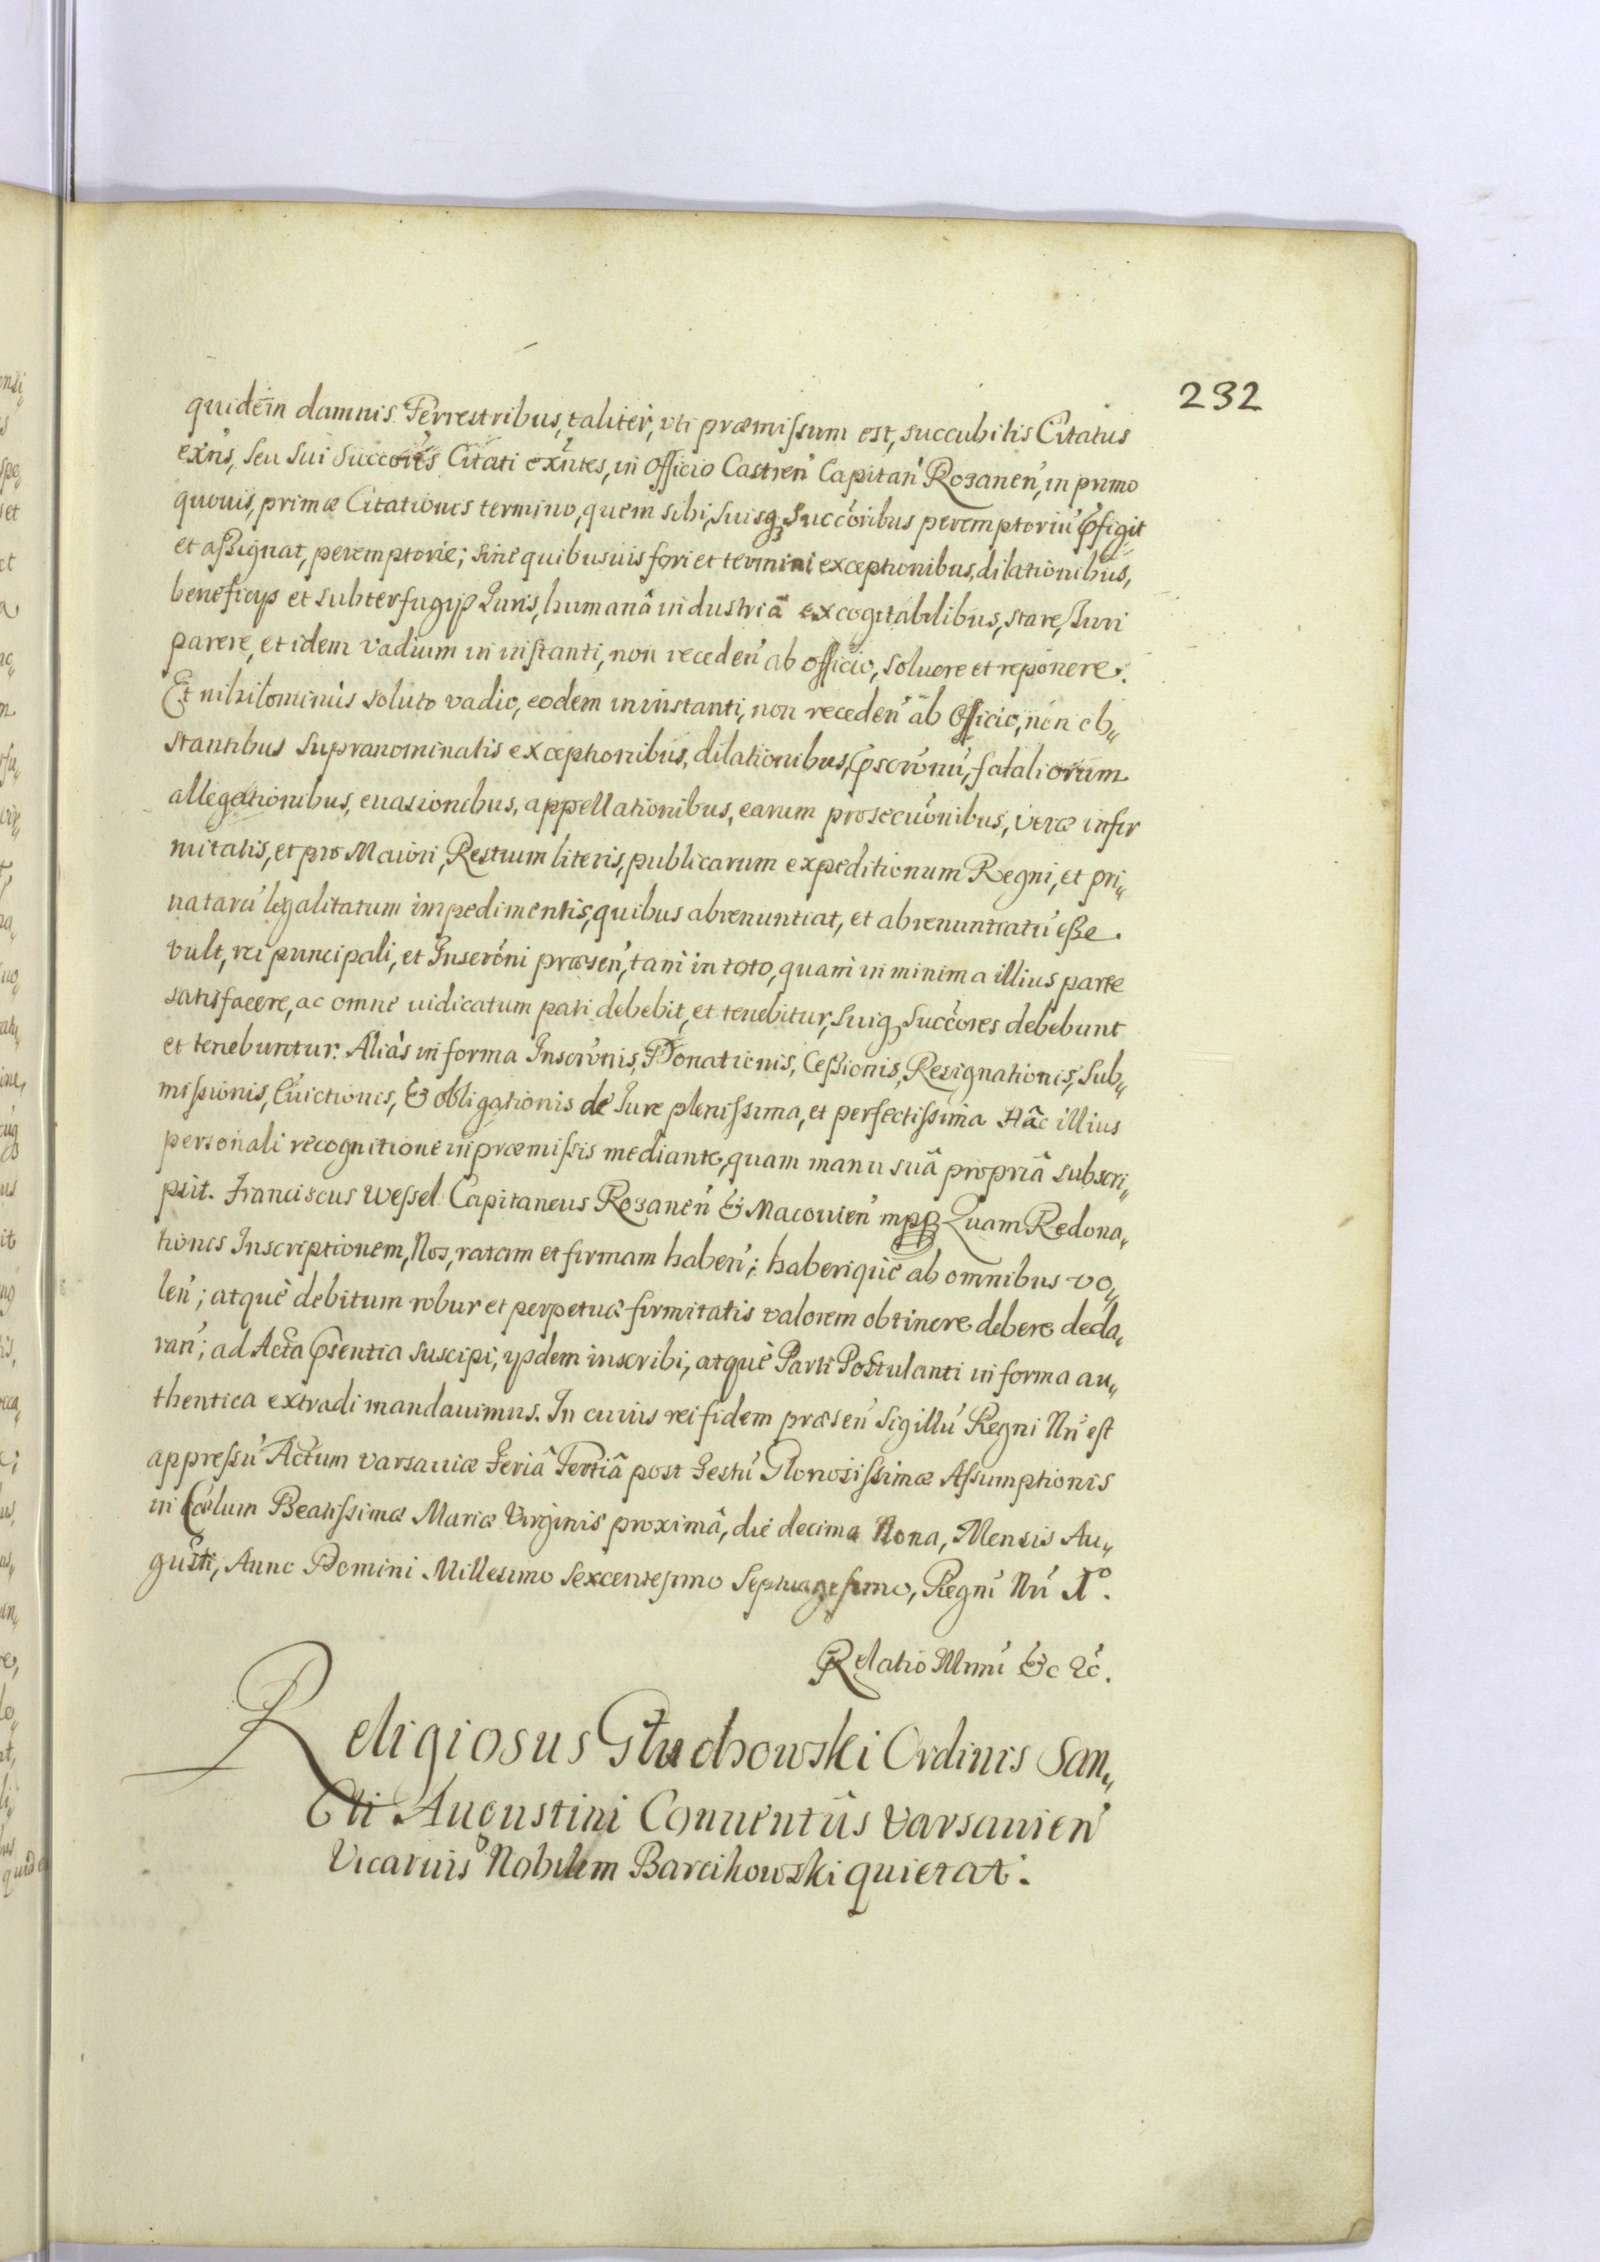 232
quidem damnis Terrestribus, taliter, vti præmissum est, succubitis Citatus
exns, seu sui Succores Citati exntes, in Officio Castren Capitan Rozanen, in primo
quouis, primæ Citationis termino, quem sibi, suisq Succoribus peremptoriu pfigit
et assignat, peremptorie; sine quibusuis fori et termini exceptionibus, dilationibus,
beneficijs et subterfugijs Iuris, humanâ industriâ excogitabilibus, stare, Iuri
parere, et idem vadium in instanti, non receden ab officio, soluere et reponere.
Et nihilominus soluto vadio, eodem in instanti, non receden ab Officio, non ob„
stantibus supranominatis exceptionibus, dilationibus, pscronu, fataliorum
allegationibus, euasionibus, appellationibus, earum prosecuonibus, veræ infir
mitatis, et pro Maiori, Restium literis, publicarum expeditionum Regni, et pri„
uataru legalitatum impedimentis, quibus abrenuntiat, et abrenuntiatu esse
vult, rei principali, et Inscroni præsen, tam in toto, quam in minima illius parte
satisfacere, ac omne iudicatum pati debebit, et tenebitur, suiq Succores debebunt
et tenebuntur. Aliàs in forma Inscronis, Donationis, Cessionis, Resignationis, Sub„
missionis, Euictionis, & obligationis de Iure plenissima, et perfectissima Hâc illius
personali recognitione in præmissis mediante, quam manu suâ propriâ subscri„
psit. Franciscus Wessel Capitaneus Rozanen & Macouien mpp Quam Redona„
tionis Inscriptionem, Nos, ratam et firmam haben; haberique ab omnibus vo„
len; atque debitum robur et perpetuæ firmitatis valorem obtinere debere decla„
ran; ad Acta psentia suscipi, ijsdem inscribi, atque Parti Postulanti in forma au„
thentica extradi mandauimus. In cuius rei fidem præsen Sigillu Regni Nri est
appressu Actum Varsauiæ Feriâ Tertiâ post Festu Gloriosissimæ Assumptionis
in Cælum Beatissimæ Mariæ Virginis proximâ, die decima Nona, Mensis Au„
gusti, Anno Domini Millesimo Sexcentesimo Septuagesimo, Regni Nri Iº.
Relatio Illmi &c &c.
Religiosus Głuchowski Ordinis San„
cti Augustini Conuentûs Varsauien
Vicarius Nobilem Barcikowski quietat.